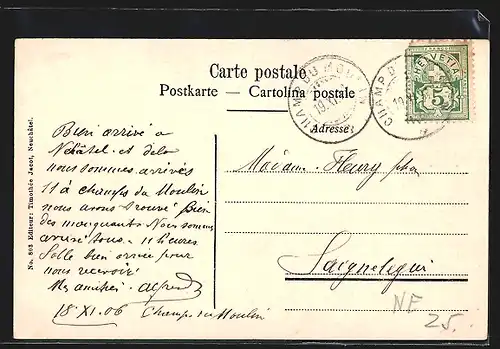 Carte postale
Postkarte — Cartolina postale
Adresse:
CHAMP DU MOULIN
CHAMP. D
HELVETIA
5
Bien arrivé à
Nchâtel et de là
nous sommes arrivés
11 à champs du Moulin
nous avons trouvé Bien
des manquants Nous sommes
arrivé tous 11 heures
Bien arrivée pour
nous recevoir
Mes amitiés Alfred
18 XI. 06 Champ-du Moulin
Madame Fleury
Saignelegier
NE
25.
No. 803 Editeur: Timothée Jacot, Neuchâtel.